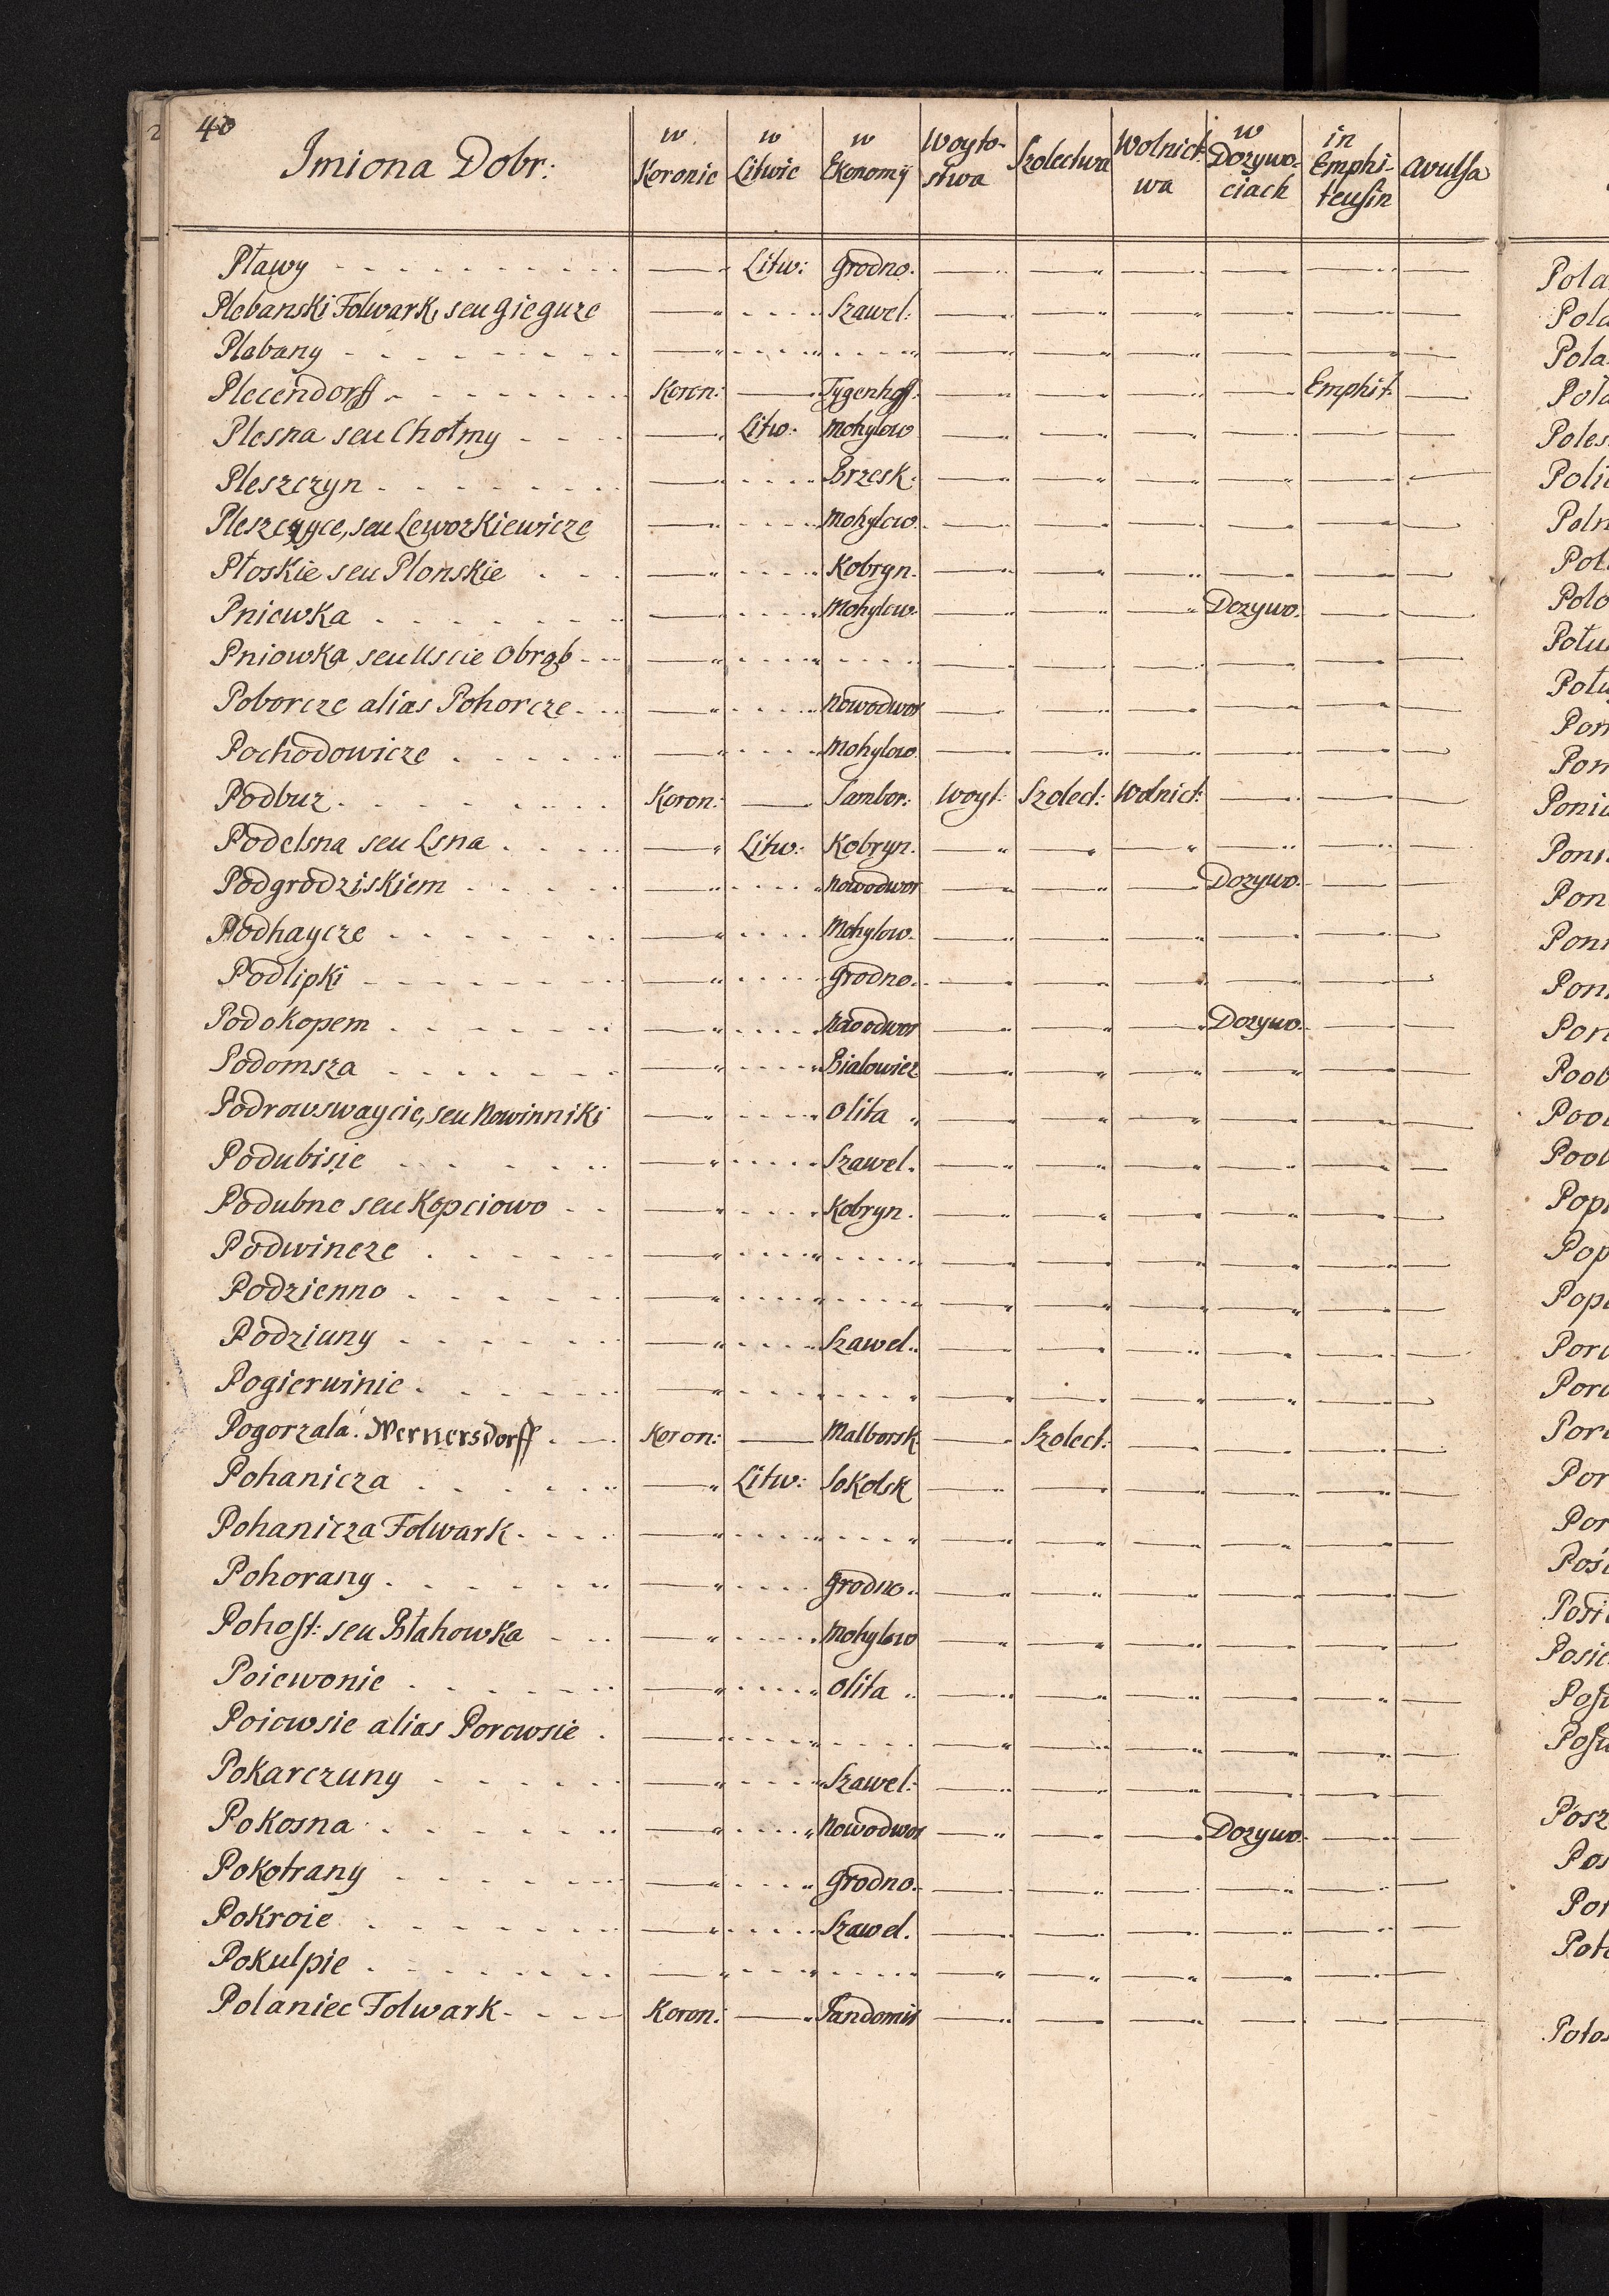 40
Imiona Dobr: w Koronie w Litwie w Ekonomij Woyto-stwa Szolectwa Wolnict-wa w Dozywo-ciach in Emphi-teusin avulsa
Pławy Litw: Grodno.
Plebanski Folwark, seu Gieguze Szawel:
Plabany
Plecendorff Koron: Tygenhoff. Emphit:
Plesna seu Chołmy Litw: Mohylow
Pleszczyn Brzesk:
Pleszczyce, seu Leworkiewicze Mohylow.
Płoskie seu Plonskie Kobryn.
Pniewka Mohylow. Dozywo.
Pniowka seu Uscie Obrąb
Poborcze alias Pohorcze Nowodwor
Pochodowicze Mohylow.
Podbuz Koron: Sambor: Woyt: Szolect: Wolnict:
Podelsna seu Lsna Litw: Kobryn.
Podgrodziskiem Nowodwor Dozywo.
Podhaycze Mohylow.
Podlipki Grodno.
Podokopem Nowodwor Dozywo.
Podomsza Bialowiez
Podrowswaycie, seu Nowinniki Olita
Podubisie Szawel.
Podubne seu Kopciowo Kobryn.
Podwincze
Podzienno
Podziuny Szawel.
Pogierwinie
Pogorzala. Wernersdorff Koron: Malborsk Szolect:
Pohanicza Litw: Sokolsk
Pohanicza Folwark
Pohorany Grodno.
Pohost: seu Błahowka Mohylow
Poiewonie Olita
Poiowsie alias Porowsie
Pokarczuny Szawel:
Pokosna Nowodwor Dozywo.
Pokotrany Grodno.
Pokroie Szawel.
Pokulpie
Polaniec Folwark Koron: Sandomir